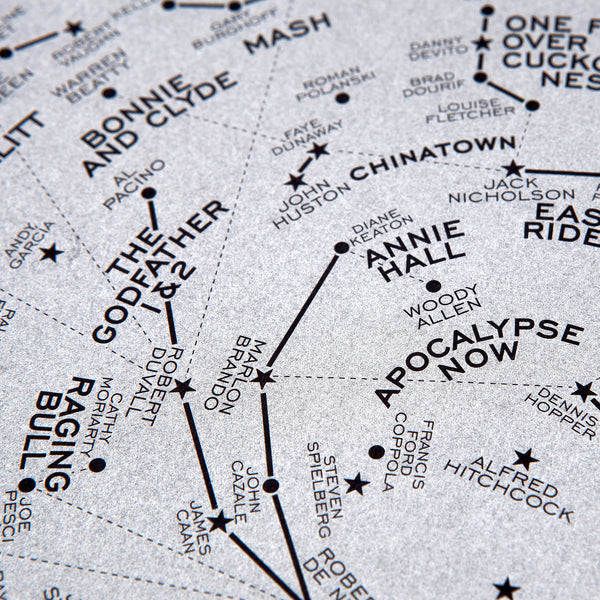 ROBERT
VAUGHN
GARY
BURGHOFF
MASH
WARREN
BEATTY
BONNIE
AND CLYDE
ROMAN
POLANSKI
DANNY
DEVITO
BRAD
DOURIF
LOUISE
FLETCHER
ONE
OVER
NES
FAYE
DUNAWAY
JOHN
HUSTON
CHINATOWN
JACK
NICHOLSON
EAS
RIDE
AL
PACINO
ANDY
GARCIA
THE
GODFATHER
1 & 2
DIANE
KEATON
ANNIE
HALL
WOODY
ALLEN
ROBERT
DUVALL
MARLON
BRANDO
APOCALYPSE
NOW
DENNIS
HOPPER
RAGING
BULL
CATHY
MORIARTY
JOE
PESCI
JAMES
CAAN
JOHN
CAZALE
STEVEN
SPIELBERG
FRANCIS
FORD
COPPOLA
ALFRED
HITCHCOCK
ROBE
DE N